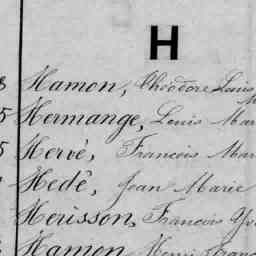 H
8 Hamon, Théodore Louis
M
5 Hermange, Louis Mar
5 Hervé, François Mar
Hedé, Jean Marie
Herisson, François Yv
Hamon, Henri Franç